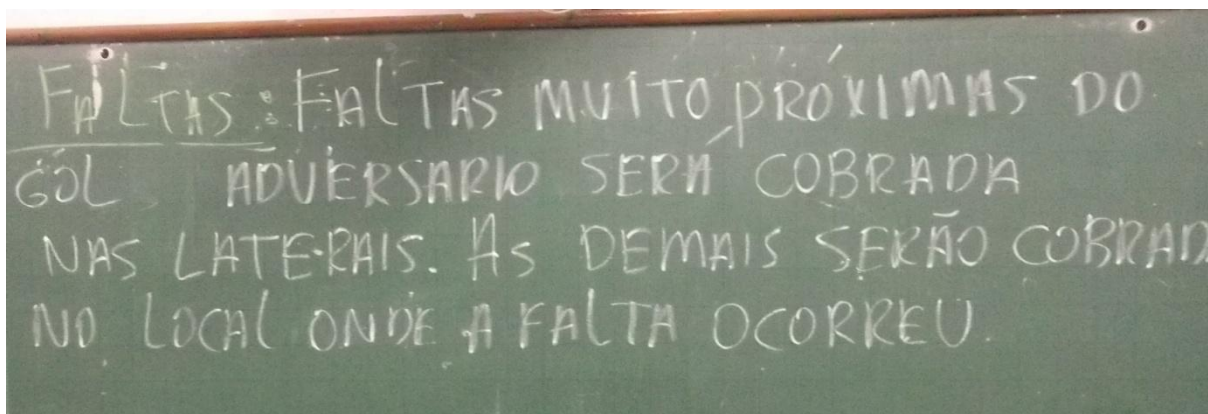 FALTAS: FALTAS MUITO PRÓXIMAS DO
GOL ADVERSARIO SERÁ COBRADA
NAS LATERAIS. AS DEMAIS SERÃO COBRAD
NO LOCAL ONDE A FALTA OCORREU.